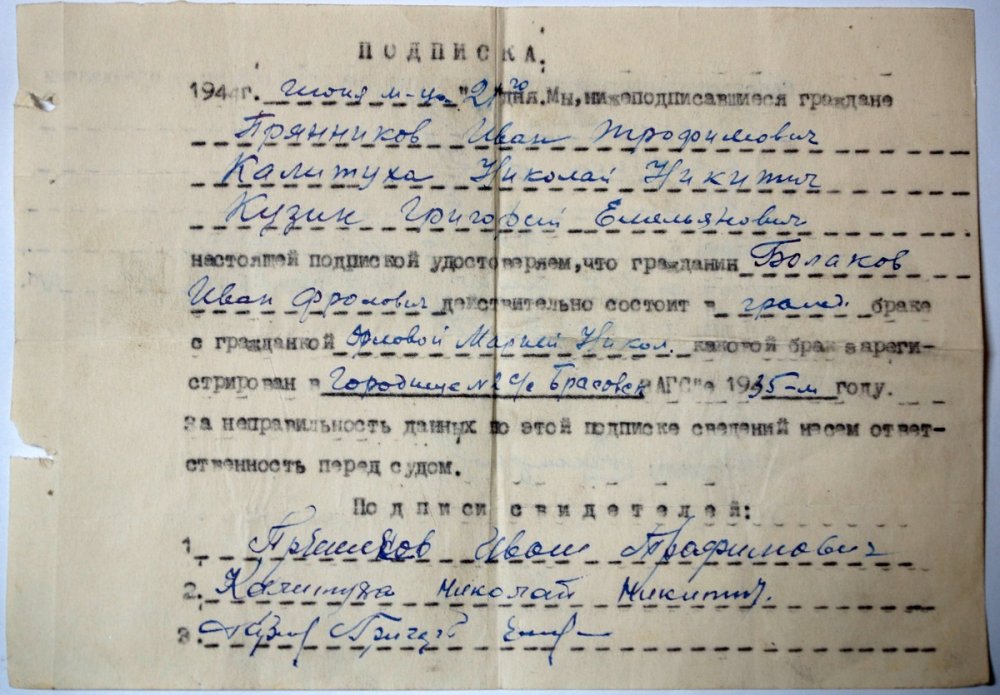 ПОДПИСКА.
1944г. Июня м-ца "21го дня. Мы, нижеподписавшиеся граждане
Прянников Иван Трофимович
Калитуха Николай Никитич
Кузин Григорий Емельянович
настоящей подпиской удостоверяем, что гражданин Болаков
Иван Фролович действительно состоит в гражд. браке
с гражданкой Орловой Марией Никол. каковой брак зареги-
стрирован в Городище №2 с/с Брасовск ЗАГС"е 1935-м году.
За неправильность данных по этой подписке сведений несем ответ-
ственность перед судом.
Подписи свидетелей:
1. Иван Трафимович
2. Калитуха Николай Никитич.
3.